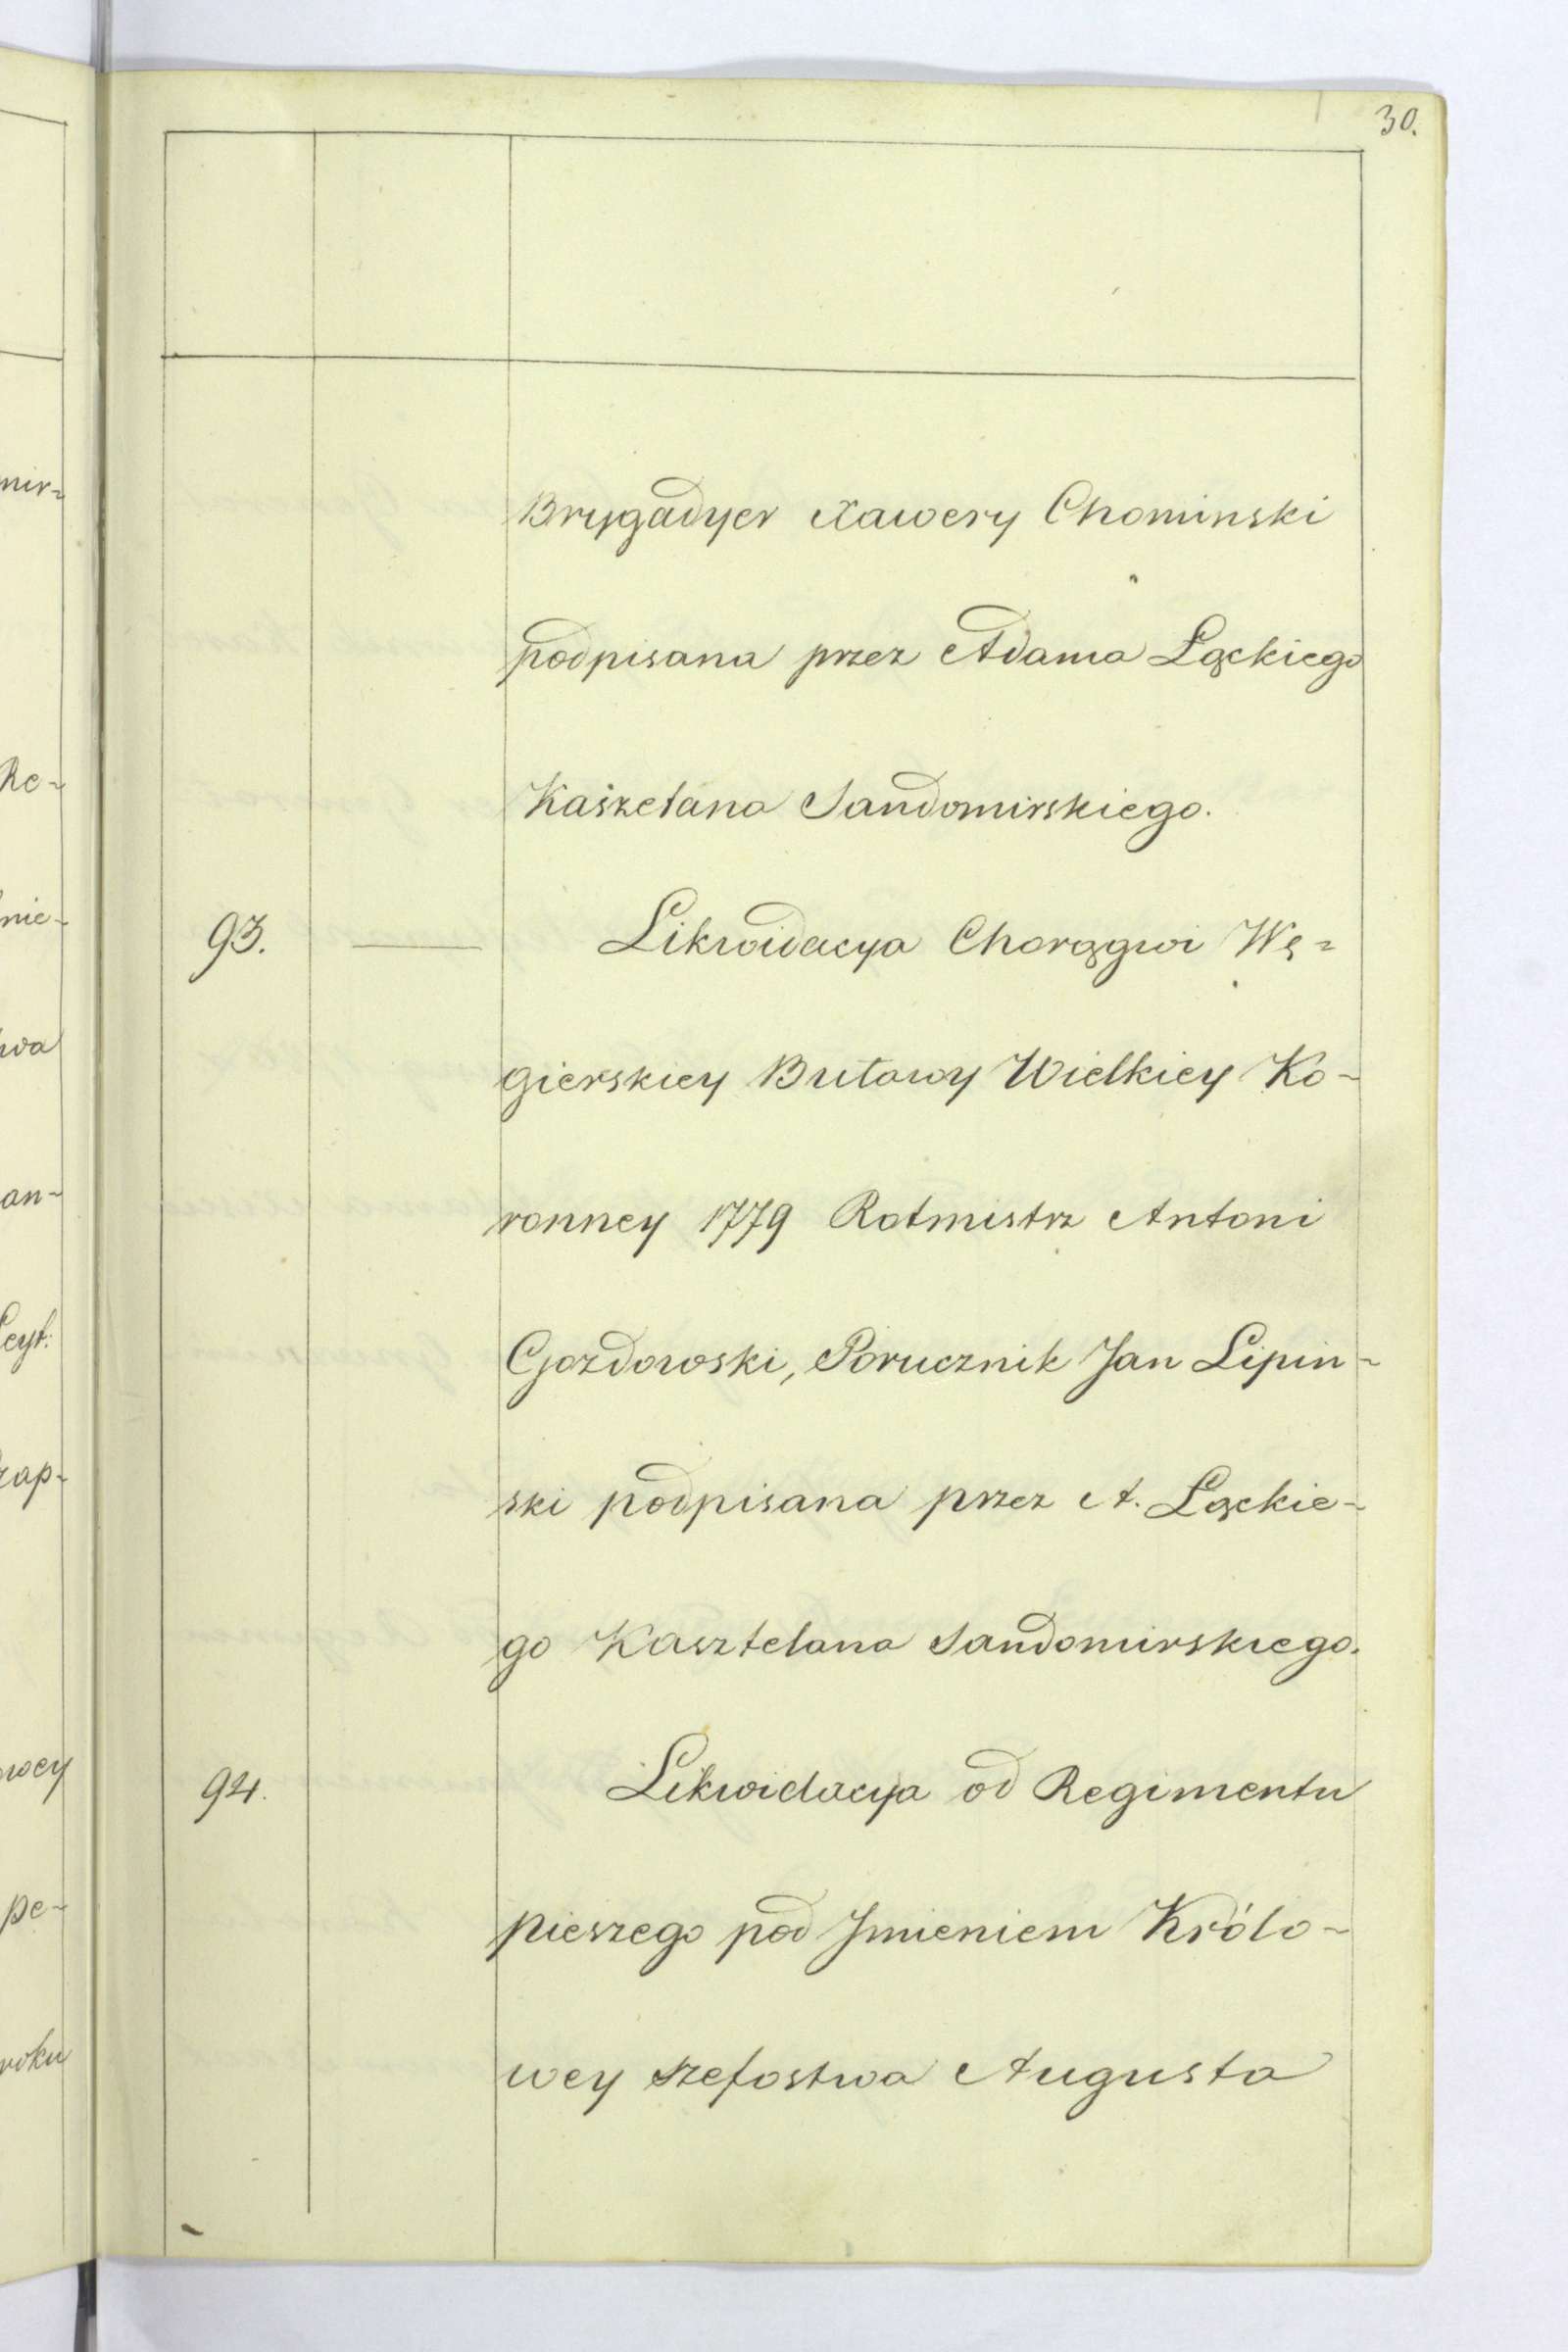 30.
Brygadyer Xawery Chominski
podpisana przez Adama Łąckiego
Kaszetana Sandomirskiego.
93. Likwidacya Chorągwi Wę=
gierskiey Buławy Wielkiey Ko-
ronney 1779 Rotmistrz Antoni
Gozdowski, Porucznik Jan Lipin-
ski podpisana przez A. Łąckie-
go Kasztelana Sandomirskiego.
94. Likwidacya od Regimentu
pieszego pod Jmieniem Królo-
wey szefostwa Augusta
mir=
Re-
nie-
wa
an-
zap-
wey
pe-
roku